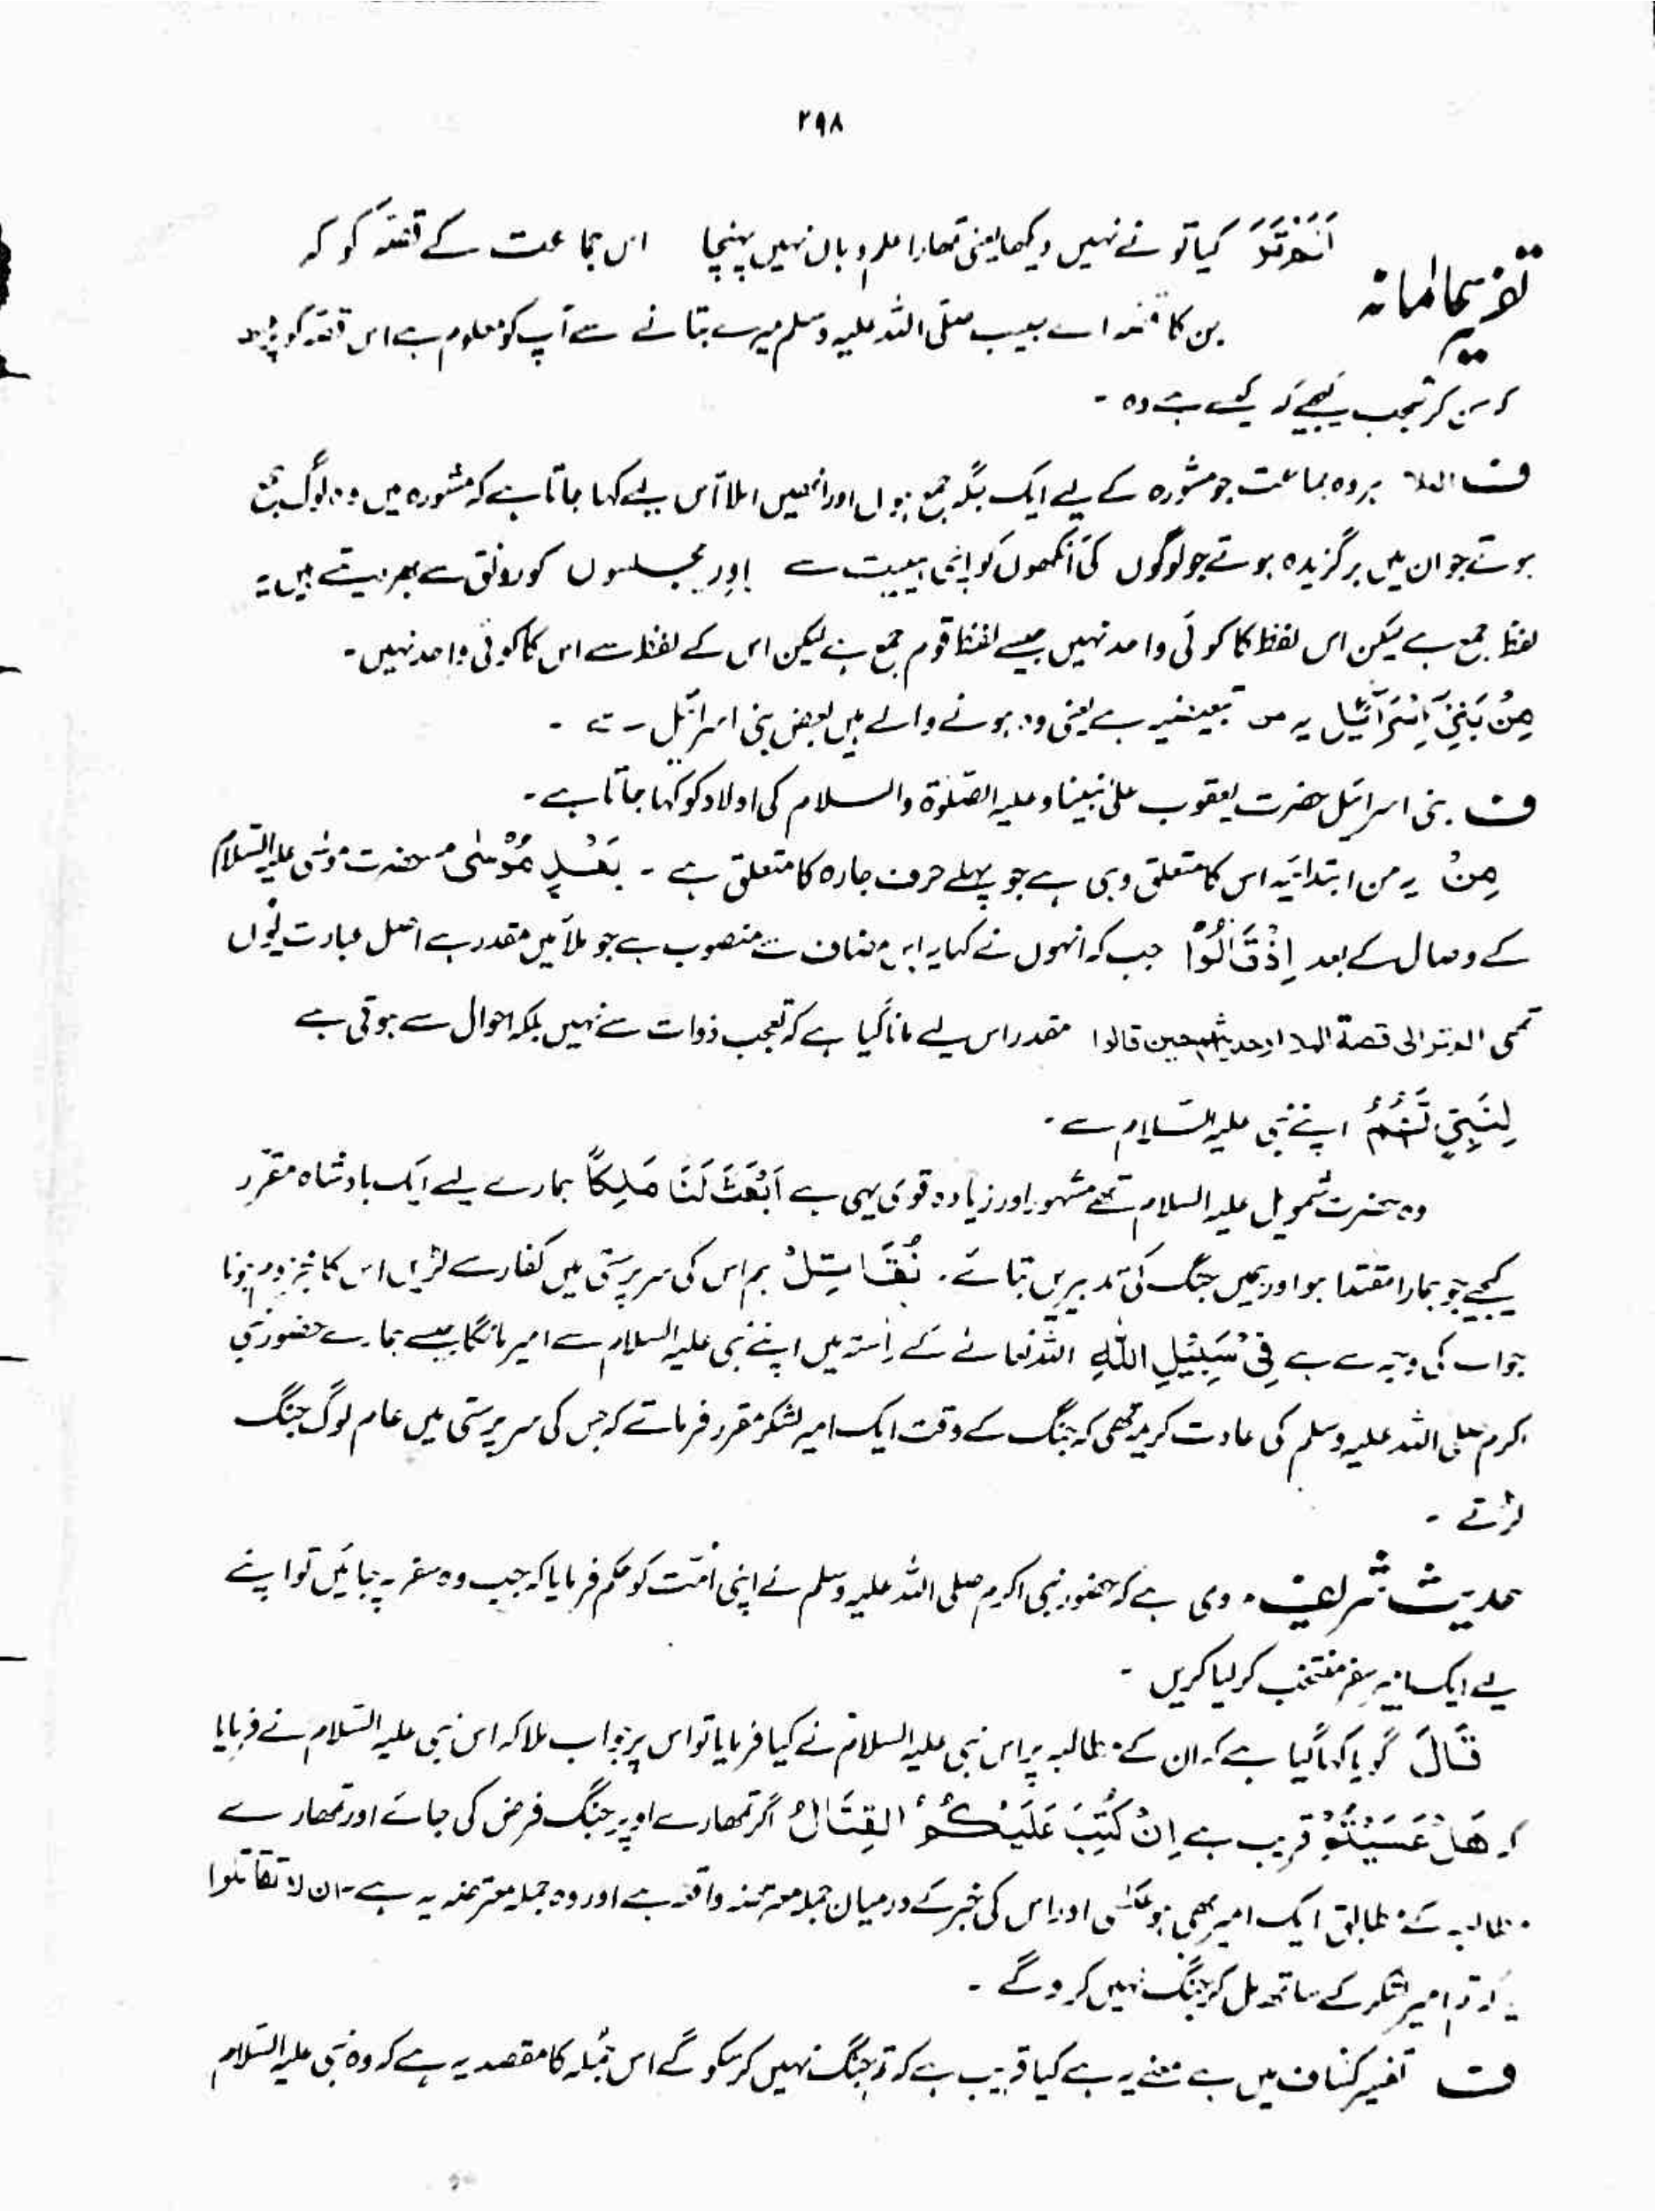 ۲۹۸
تفسیر عالمانہ
اَلَمْ تَرَ کیا تو نے نہیں دیکھا یعنی تمھارا علم وہاں نہیں پہنچا اس جماعت کے قصّہ کو کہ
جن کا قصہ اے حبیب صلّی اللہ علیہ وسلم میرے بتانے سے آپ کو معلوم ہے اس قصّہ کو پڑھ
کر سن کر تعجب کیجیے کہ کیسے ہے وہ ۔
ف الملاء ہر وہ جماعت جو مشورہ کے لیے ایک جگہ جمع ہوں اور انھیں الملاء اس لیے کہا جاتا ہے کہ مشورہ میں وہ لوگ جمع
ہوتے جو ان میں برگزیدہ ہوتے جو لوگوں کی آنکھوں کو اپنی ہیبت سے اور مجلسوں کو رونق سے بھر دیتے ہیں یہ
لفظ جمع ہے لیکن اس لفظ کا کوئی واحد نہیں جیسے لفظ قوم جمع ہے لیکن اس کے لفظ سے اس کا کوئی واحد نہیں ۔
مِنْ بَنِیْ اِسْرَآئِیْلَ یہ من تبعیضیہ ہے یعنی وہ ہونے والے ہیں بعض بنی اسرائیل سے ۔
ف بنی اسرائیل حضرت یعقوب علیٰ نبینا وعلیہ الصّلوٰۃ والسلام کی اولاد کو کہا جاتا ہے ۔
مِنْ یہ من ابتدائیہ اس کا متعلق وہی ہے جو پہلے حرف جارہ کا متعلق ہے ۔ بَعْدِ مُوْسٰی حضرت موسٰی علیہ السّلام
کے وصال کے بعد اِذْ قَالُوْا جب کہ انہوں نے کہا یہ اس مضاف سے منصوب ہے جو ملاً میں مقدر ہے اصل عبارت یُوں
تھی الم تر الی قصۃ الملاء او حدیثہم حین قالوا مقدر اس لیے مانا گیا ہے کہ تعجب ذوات سے نہیں بلکہ احوال سے ہوتی ہے
لِنَبِیٍّ لَّهُمُ اپنے نبی علیہ السّلام سے ۔
وہ حضرت شمویل علیہ السلام تھے مشہور اور زیادہ قوی یہی ہے ابْعَثْ لَنَا مَلِکًا ہمارے لیے ایک بادشاہ مقرّر
کیجیے جو ہمارا مقتدا ہو اور ہمیں جنگ کی تدبیریں بتائے ۔ نُقَاتِلْ ہم اس کی سرپرستی میں کفار سے لڑیں اس کا مجزوم ہونا
جواب کی وجہ سے ہے فِیْ سَبِیْلِ اللّٰهِ اللہ تعالٰے کے راستہ میں اپنے نبی علیہ السلام سے امیر مانگا جیسے ہمارے حضور نبی
اکرم صلی اللہ علیہ وسلم کی عادت کریمہ تھی کہ جنگ کے وقت ایک امیر لشکر مقرر فرماتے کہ جس کی سرپرستی میں عام لوگ جنگ
لڑتے ۔
حدیث شریف مروی ہے کہ حضور نبی اکرم صلی اللہ علیہ وسلم نے اپنی اُمّت کو حکم فرمایا کہ جب وہ سفر پہ جائیں تو اپنے
لیے ایک امیر سفر منتخب کر لیا کریں ۔
قَالَ گویا کہا گیا ہے کہ ان کے مطالبہ پر اس نبی علیہ السلام نے کیا فرمایا تو اس پر جواب ملا کہ اس نبی علیہ السّلام نے فرمایا
کہ هَلْ عَسَیْتُمْ قریب ہے اِنْ کُتِبَ عَلَیْکُمُ الْقِتَالُ اگر تمھارے اوپر جنگ فرض کی جائے اور تمھارے
مطالبہ کے مطابق ایک امیر بھی ہو عسٰی اور اس کی خبر کے درمیان جملہ معترضہ واقعہ ہے اور وہ جملہ معترضہ یہ ہے ۔ ان لا تقاتلوا
یہ کہ تم امیر لشکر کے ساتھ مل کر جنگ نہیں کرو گے ۔
ف تفسیر کشاف میں ہے معنے یہ ہے کیا قریب ہے کہ تم جنگ نہیں کر سکو گے اس جُملہ کا مقصد یہ ہے کہ وہ نبی علیہ السّلام